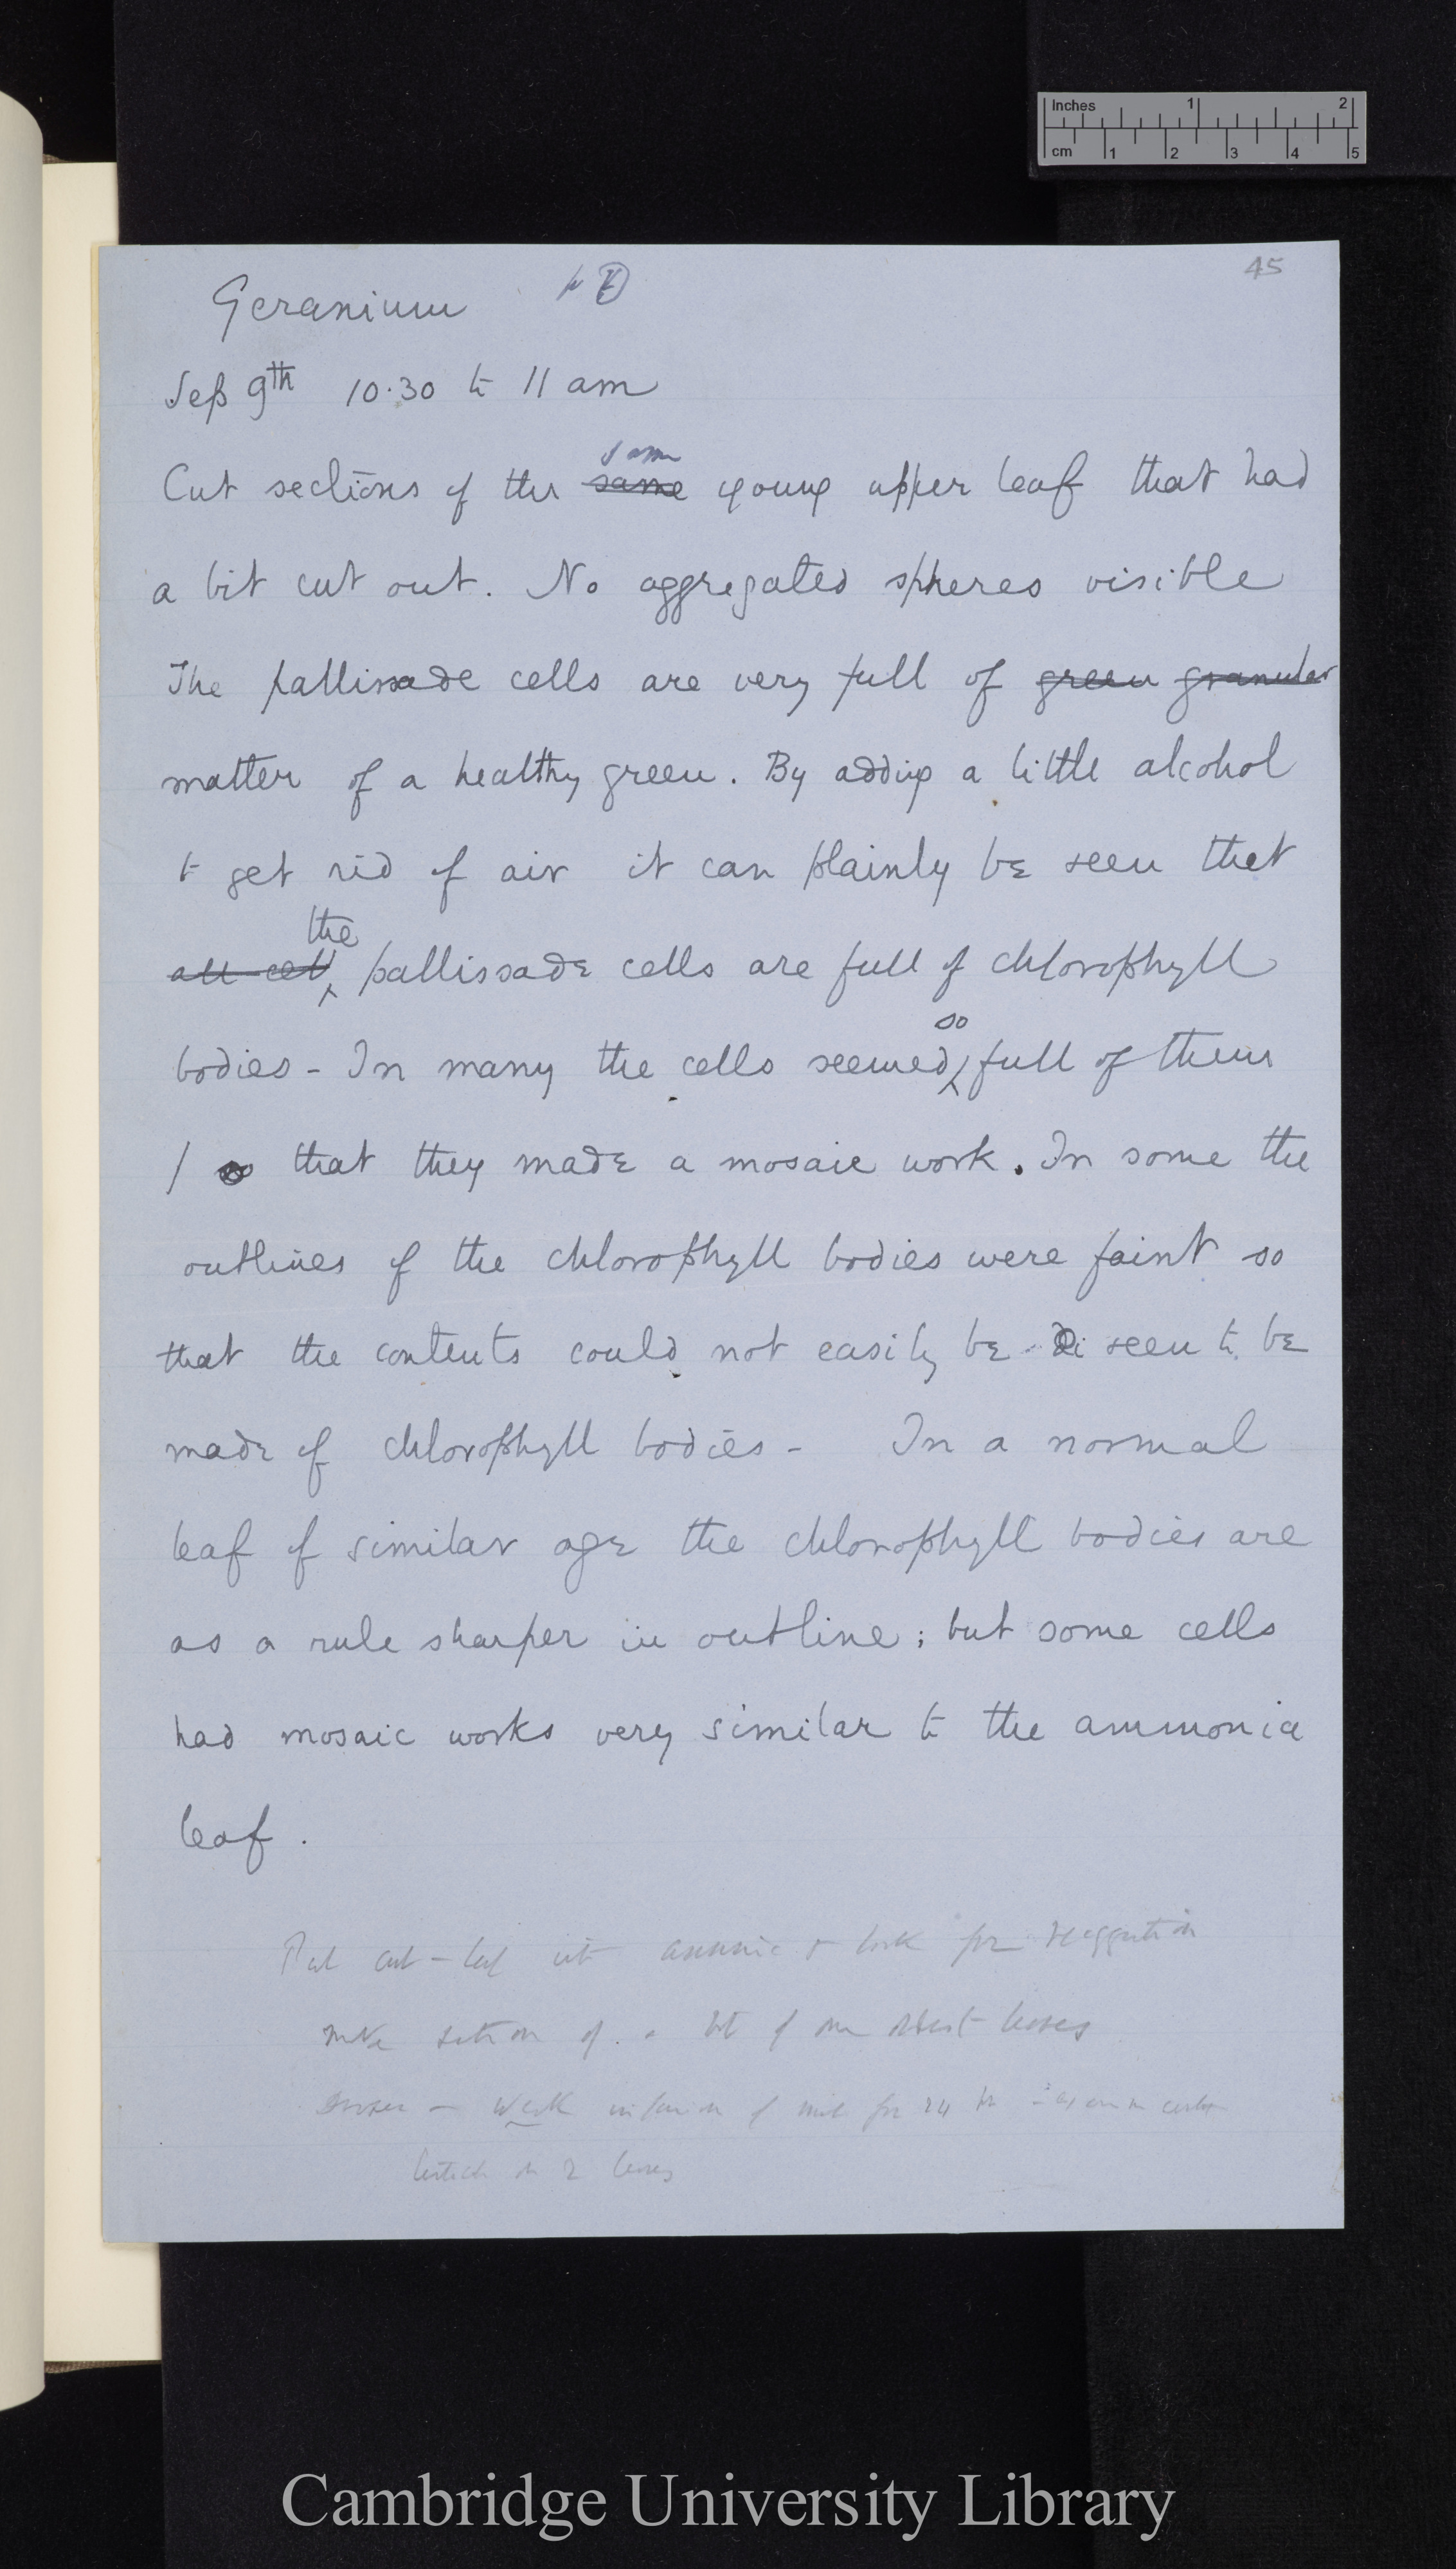 Inches 1 2
cm 1 2 3 4 5
45
Geranium
Sept 9th 10.30 to 11 am
same
Cut sections of the same young upper leaf that had
a bit cut out. No aggregated spheres visible
The pallisade cells are very full of green granular
matter of a healthy green. By adding a little alcohol
to get rid of air it can plainly be seen that
the
all cell pallissade cells are full of chlorophyll
so
bodies - In many the cells seemed full of them
/ so that they made a mosaic work. In some the
outlines of the chlorophyll bodies were faint so
that the contents could not easily be di seen to be
made of chlorophyll bodies - In a normal
leaf of similar age the chlorophyll bodies are
as a rule sharper in outline; but some cells
had mosaic works very similar to the ammonia
leaf.
Put cut-leaf & look for
make section of a bit of leaves
Weak infusion of for 24
2 leaves
Cambridge University Library